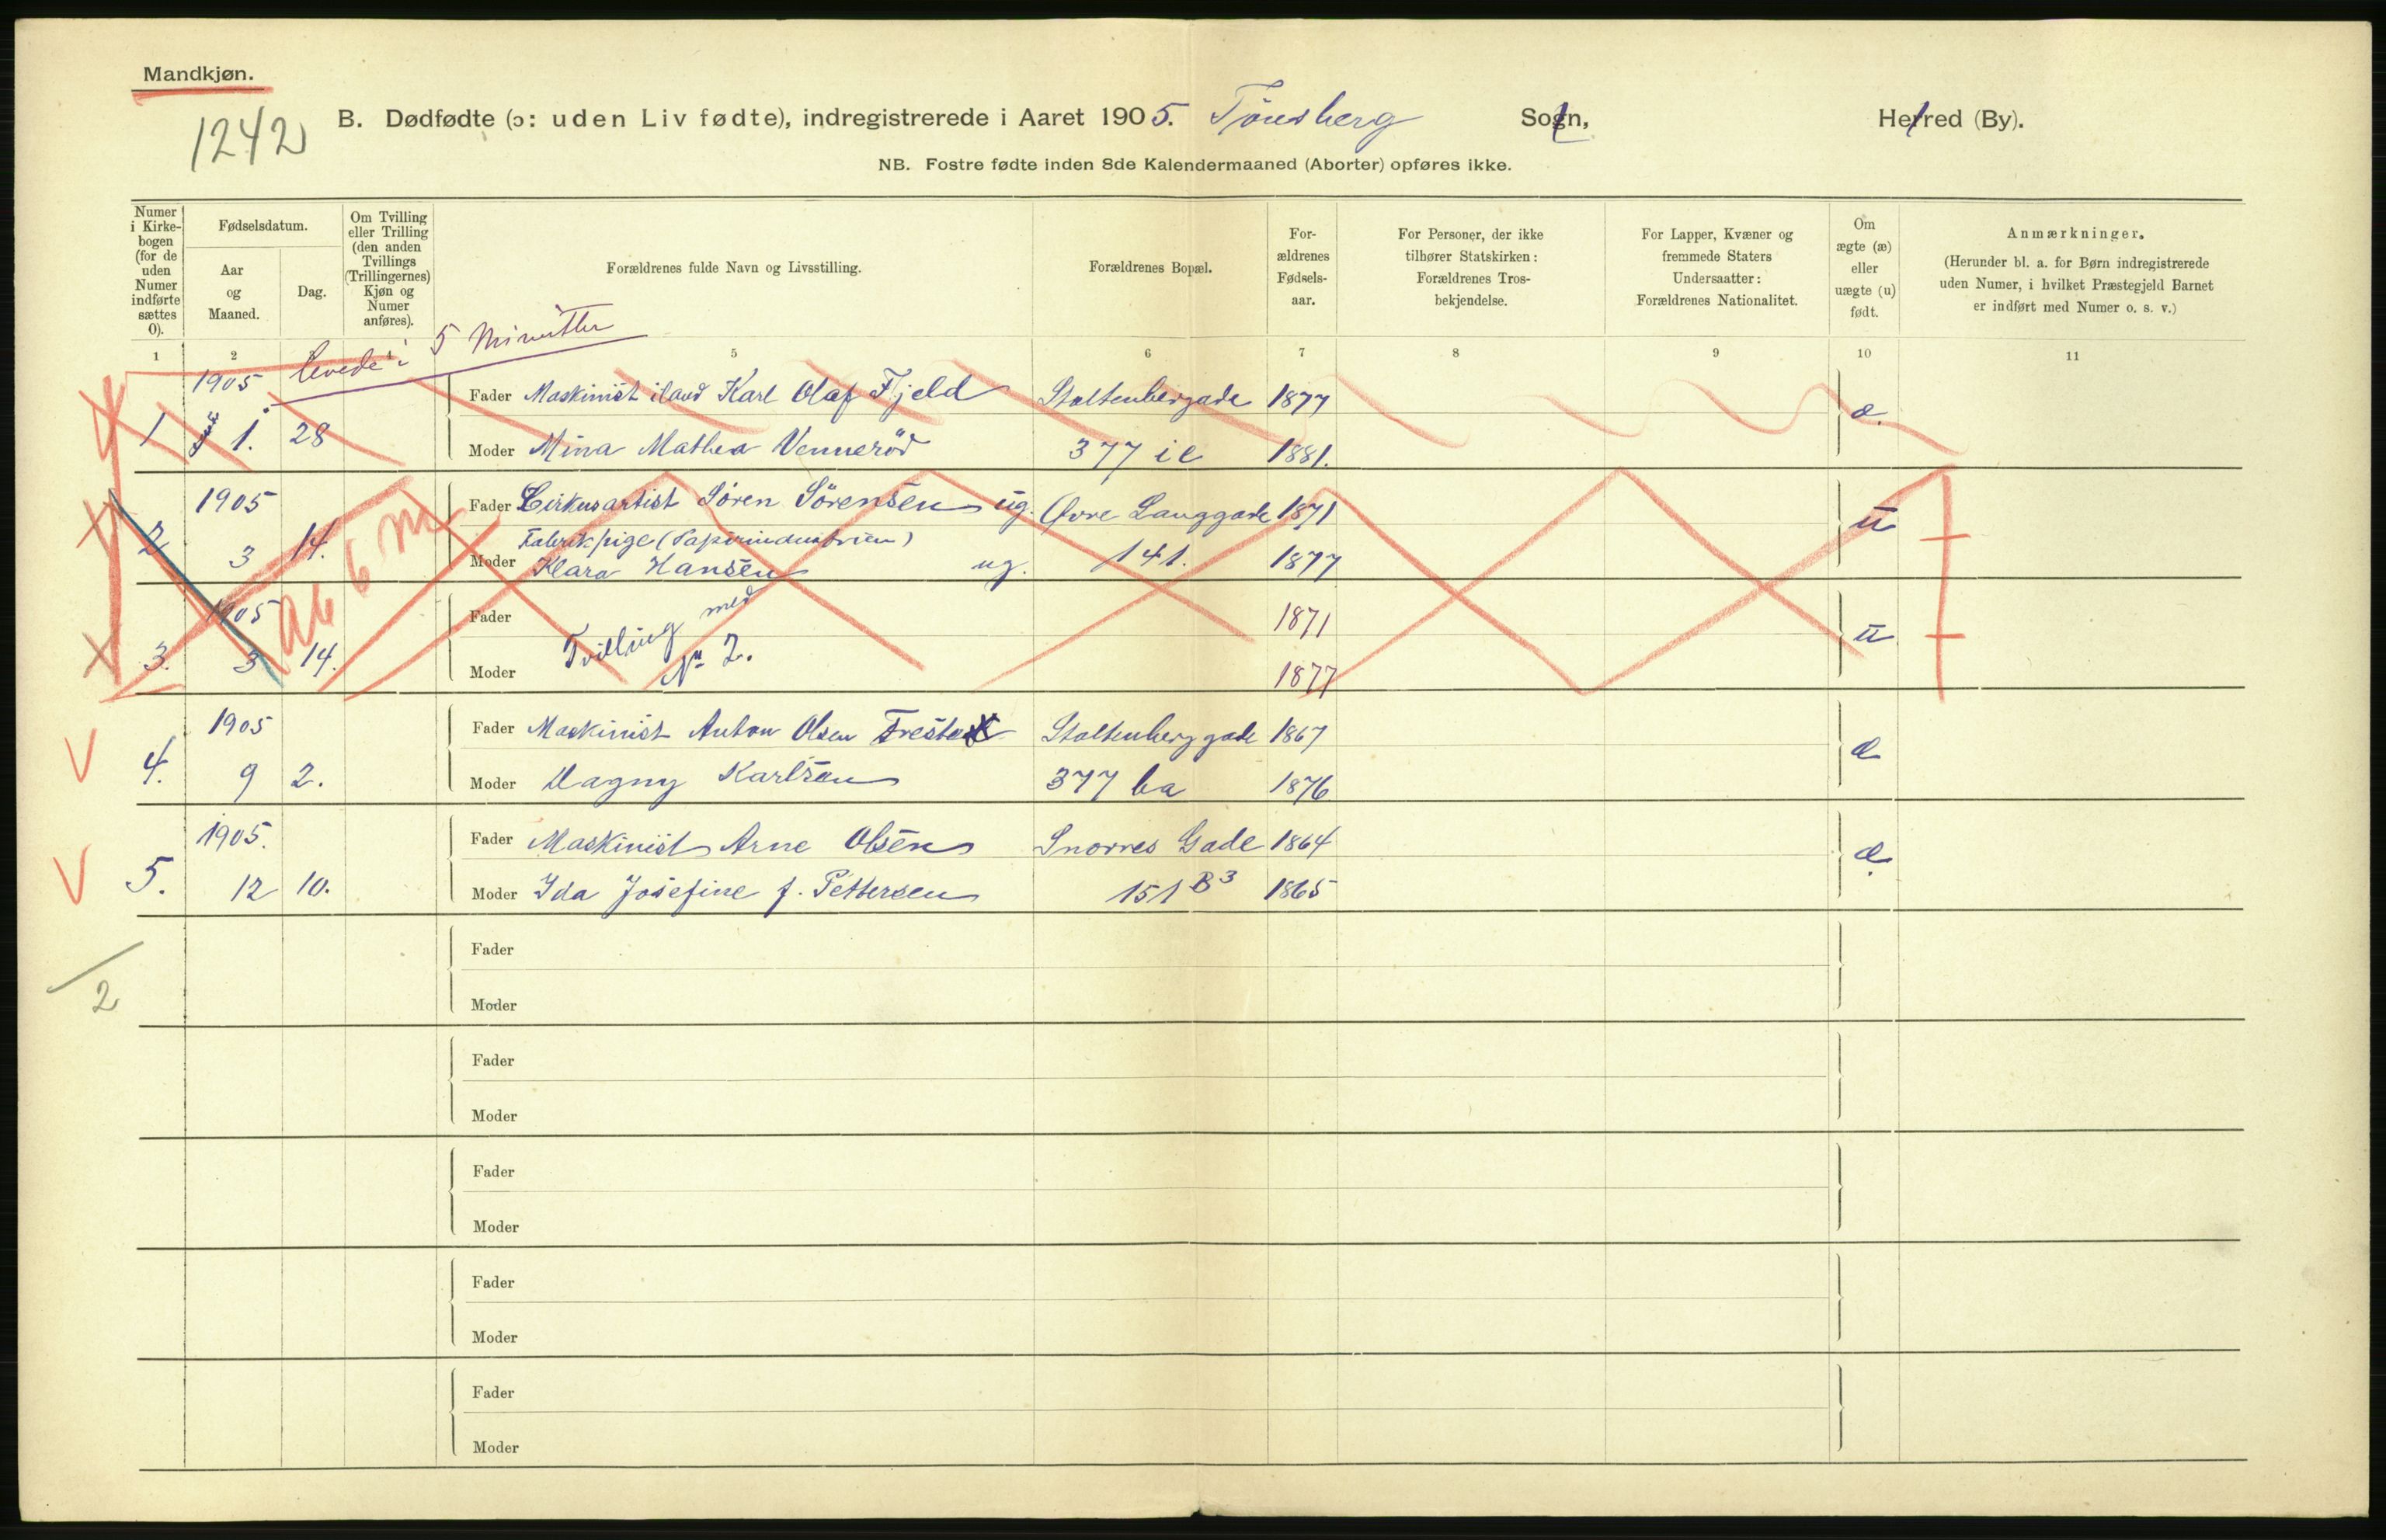 Mandkjøn.
1242
B. Dødfødte (ɔ: uden Liv fødte), indregistrerede i Aaret 1905. Tönsberg Sogn, Herred (By).
NB. Fostre fødte inden 8de Kalendermaaned (Aborter) opføres ikke.
Numer i Kirke-bogen (for de uden Numer indførte sættes 0).
Fødselsdatum.
Aar og Maaned.
Dag.
Om Tvilling eller Trilling (den anden Tvillings (Trillingernes) Kjøn og Numer anføres).
Forældrenes fulde Navn og Livsstilling.
Forældrenes Bopæl.
For-ældrenes Fødsels-aar.
For Personer, der ikke tilhører Statskirken: Forældrenes Tros-bekjendelse.
For Lapper, Kvæner og fremmede Staters Undersaatter: Forældrenes Nationalitet.
Om ægte (æ) eller uægte (u) født.
Anmærkninger.
(Herunder bl. a. for Børn indregistrerede uden Numer, i hvilket Præstegjeld Barnet er indført med Numer o. s. v.)
1 2 5 6 7 8 9 10 11
levede i 5 Minutter
1905 Fader Maskinist iland Karl Olaf Fjeld Stoltenbergade 1877 æ
1 1. 28 Moder Mina Mathea Vennerød 377 ic 1881.
1905 Fader Cirkusartist Sören Sörensen ug. Øvre Langgade 1871 u
Fabrikpige (Papirindustrien)
2 3 14. Moder Klara Hansen ug. 141. 1877
ab 6 m
1905 Fader Tvilling med 1871 u
3. 3 14. Moder № 2. 1877
1905 Fader Maskinist Anton Olsen Stoltenberggade 1867 æ
4. 9 2. Moder Dagny Karlsen 377 ba 1876
1905. Fader Maskinist Arne Olsen Snorres Gade 1864 æ
5. 12 10. Moder Ida Josefine f. Pettersen 151 B3 1865
Fader
2
Moder
Fader
Moder
Fader
Moder
Fader
Moder
Fader
Moder